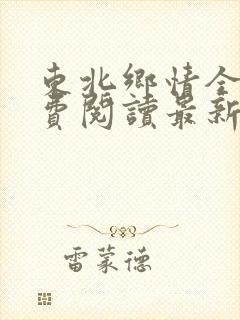 東北鄉情全
費閱讀最新
雷蒙德